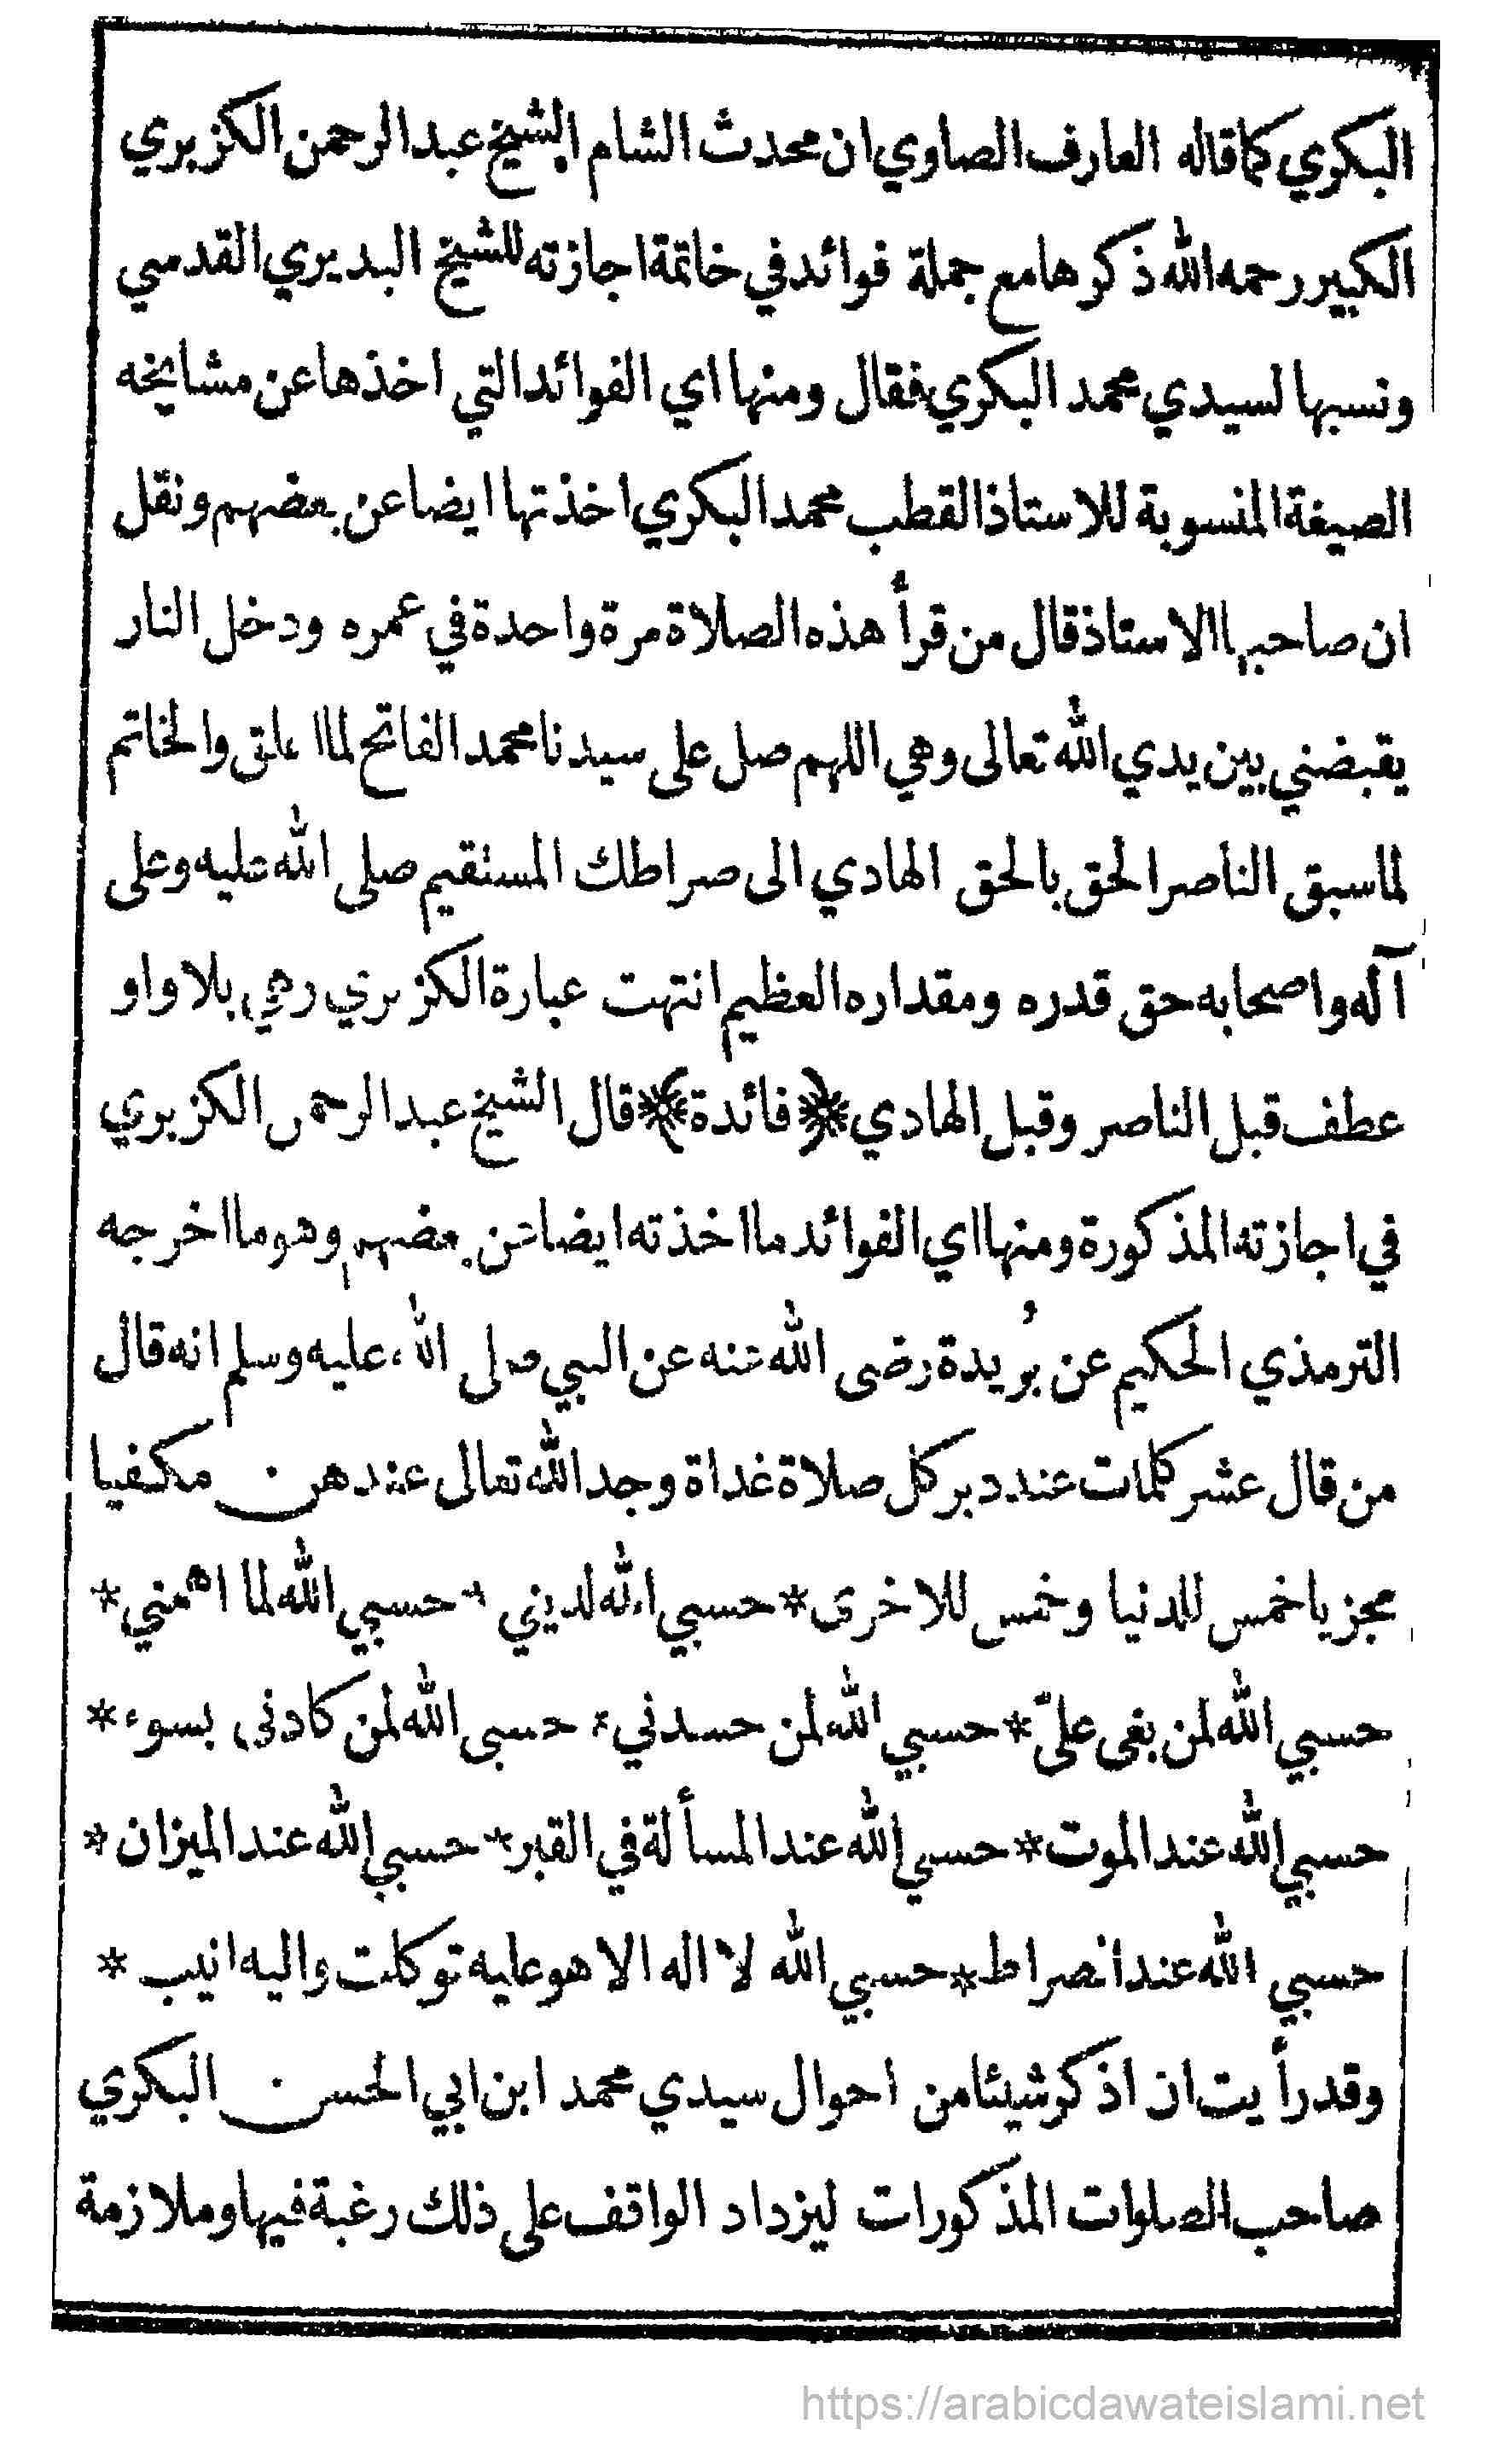 البكري كما قاله العارف الصاوي ان محدث الشام الشيخ عبد الرحمن الكزبري
الكبير رحمه الله ذكرها مع جملة فوائد في خاتمة اجازته للشيخ البديري القدسي
ونسبها لسيدي محمد البكري فقال ومنها اي الفوائد التي اخذها عن مشايخه
الصيغة المنسوبة للاستاذ القطب محمد البكري اخذتها ايضا عن بعضهم ونقل
ان صاحبها الاستاذ قال من قرأ هذه الصلاة مرة واحدة في عمره ودخل النار
يقبضني بين يدي الله تعالى وهي اللهم صل على سيدنا محمد الفاتح لما اغلق والخاتم
لما سبق الناصر الحق بالحق الهادي الى صراطك المستقيم صلى الله عليه وعلى
آله واصحابه حق قدره ومقداره العظيم انتهت عبارة الكزبري وهي بلا واو
عطف قبل الناصر وقبل الهادي ﴿فائدة﴾ قال الشيخ عبد الرحمن الكزبري
في اجازته المذكورة ومنها اي الفوائد ما اخذته ايضا عن بعضهم وهو ما اخرجه
الترمذي الحكيم عن بُريدة رضى الله عنه عن النبي صلى الله عليه وسلم انه قال
من قال عشر كلمات عند دبر كل صلاة غداة وجد الله تعالى عندهن مكفيا
مجزيا خمس للدنيا وخمس للاخرى * حسبي الله لديني * حسبي الله لما اهمني *
حسبي الله لمن بغى عليّ * حسبي الله لمن حسدني * حسبى الله لمن كادنى بسوء *
حسبي الله عند الموت * حسبي الله عند المسألة في القبر * حسبي الله عند الميزان *
حسبي الله عند الصراط * حسبي الله لا اله الا هو عليه توكلت واليه انيب *
وقد رأيت ان اذكر شيئا من احوال سيدي محمد ابن ابي الحسن البكري
صاحب الصلوات المذكورات ليزداد الواقف على ذلك رغبة فيها وملازمة
https://arabicdawateislami.net